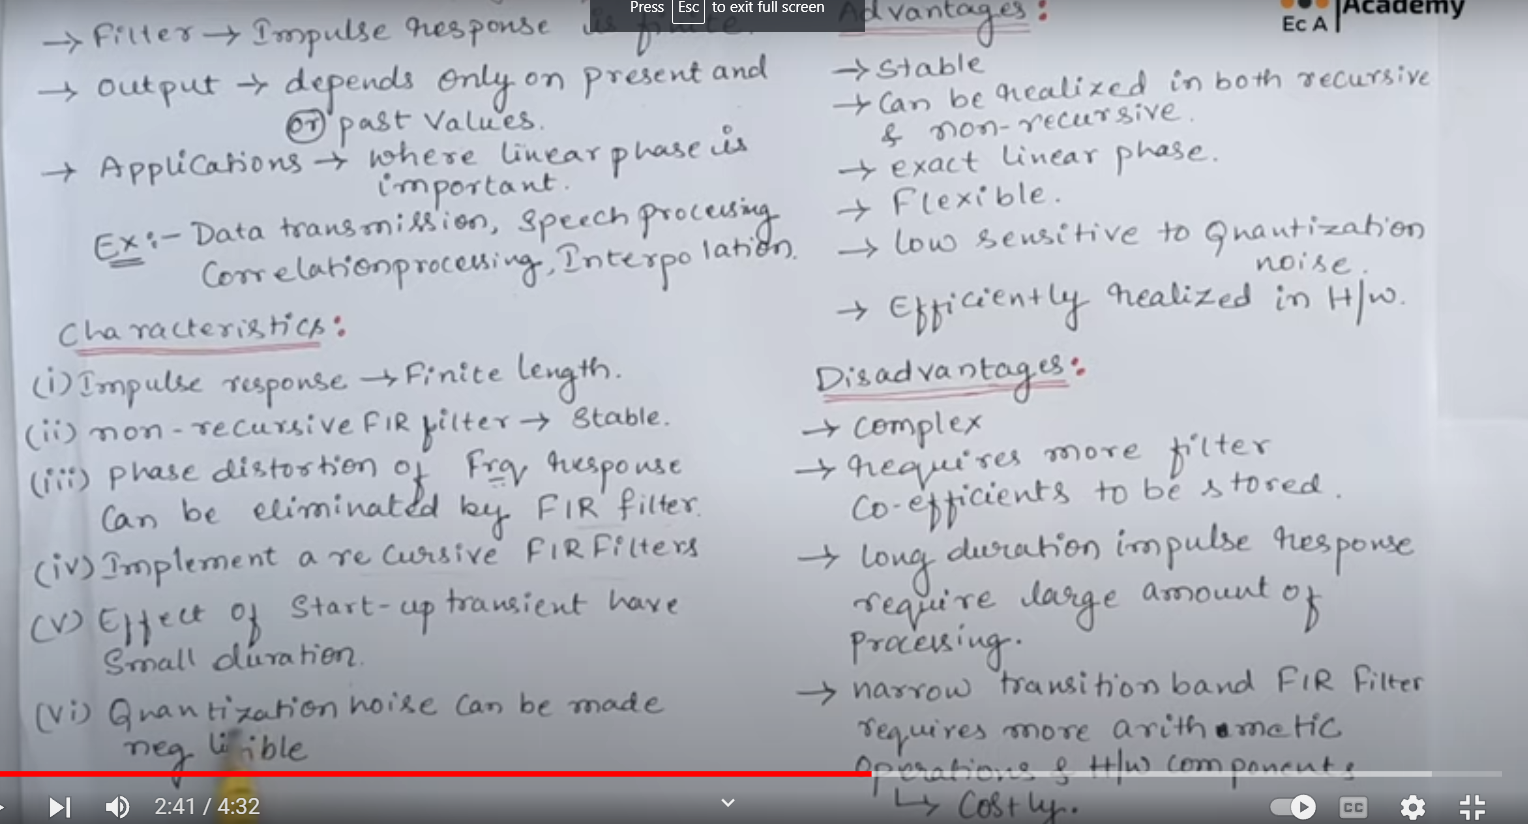 Press Esc to exit full screen
→ Filter → Impulse response is finite.
→ Output → depends only on present and
(or) past values.
→ Applications → where linear phase is
important.
Ex:- Data transmission, speech processing
Correlation processing, Interpolation.
Characteristics:
(i) Impulse response → Finite length.
(ii) non-recursive FIR filter → stable.
(iii) phase distortion of Frq response
can be eliminated by FIR filter.
(iv) Implement a recursive FIR Filters
(v) Effect of start-up transient have
small duration.
(vi) Quantization noise can be made
negligible
Advantages:
→ stable
→ can be realized in both recursive
& non-recursive.
→ exact linear phase.
→ Flexible.
→ low sensitive to Quantization
noise.
→ Efficiently realized in H/w.
Disadvantages:
→ complex
→ requires more filter
co-efficients to be stored.
→ long duration impulse response
require large amount of
processing.
→ narrow transition band FIR filter
requires more arithmetic
operations & H/w components
↳ costly.
Ec A | Academy
2:41 / 4:32
CC